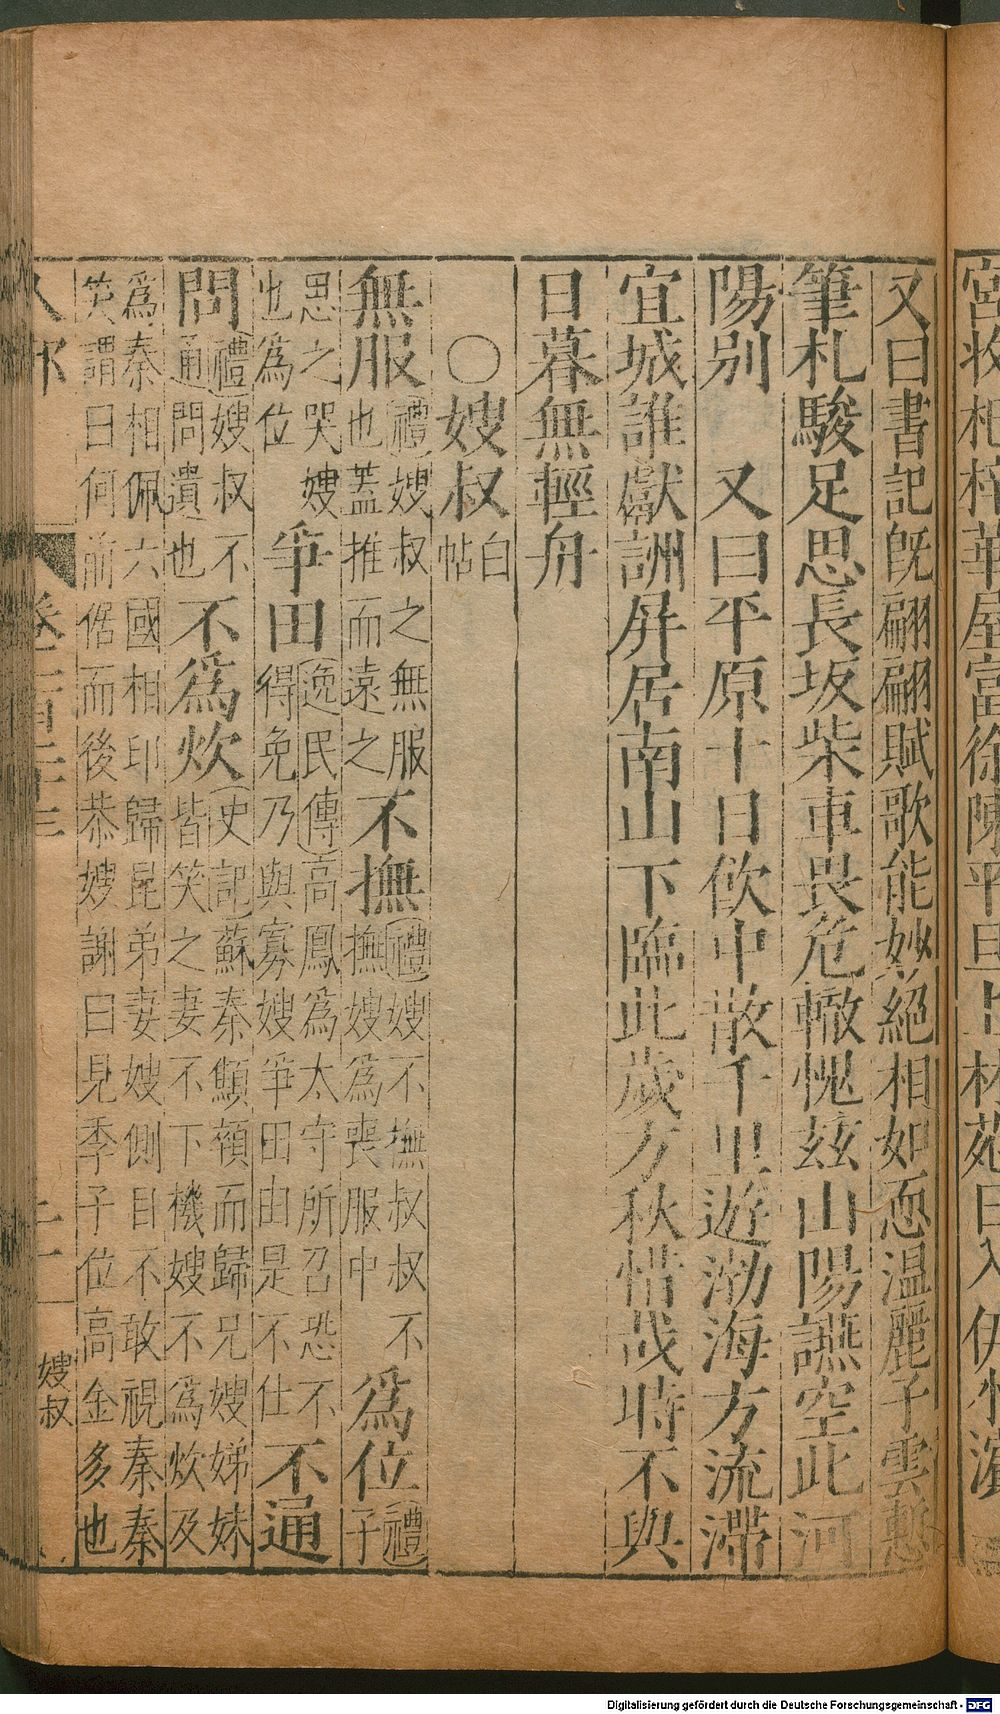 華屋富徐陳平旦上林苑日入伊水濱
又曰書記旣翩翩賦歌能妙絕相如恧温麗子雲慙
筆札駿足思長坂柴車畏危轍愧茲山陽讌空此河
陽別　又曰平原十日飲中散千里遊渤海方流滯
宜城誰獻詶屏居南山下臨此歲方秋惜哉時不與
日暮無輕舟
○嫂叔白帖
無服禮嫂叔之無服也蓋推而遠之不撫禮嫂不撫叔叔不撫嫂爲喪服中爲位禮子
思之哭嫂也爲位爭田逸民傳高鳳爲太守所召恐不得免乃與寡嫂爭田由是不仕不通
問禮嫂叔不通問遺也不爲炊史記蘇秦顦顇而歸兄嫂娣妹皆笑之妻不下機嫂不爲炊及
爲秦相佩六國相印歸昆弟妻嫂側目不敢視秦秦笑謂曰何前倨而後恭嫂謝曰見季子位高金多也
人部
嫂叔
Digitalisierung gefördert durch die Deutsche Forschungsgemeinschaft - DFG